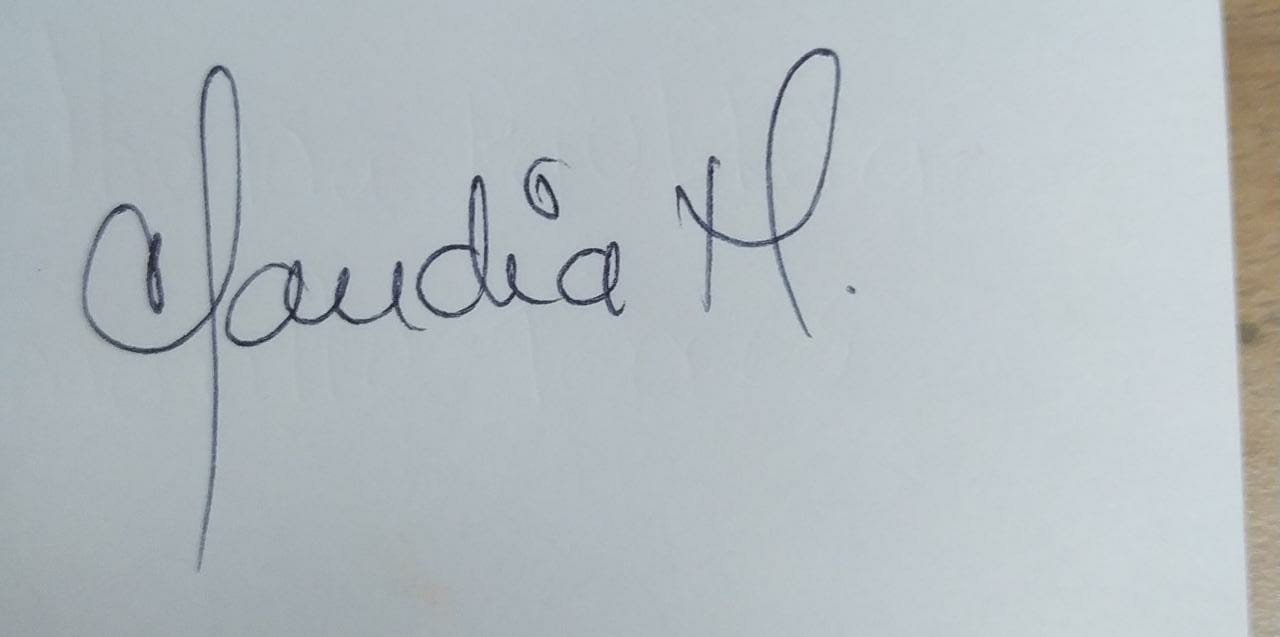 Claudia H.